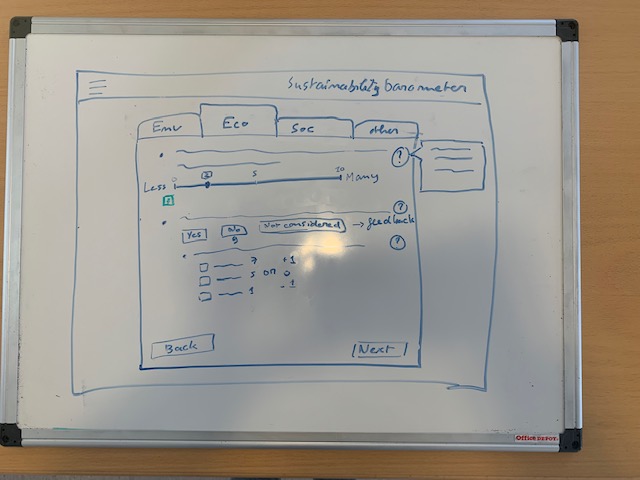 Sustainability barometer
Env Eco Soc Other
?
Less Many
0 5 20
1
Yes No Not considered → feedback ?
0
?
7 +1
5 or 0
1 -1
Back Next
Office DEPOT